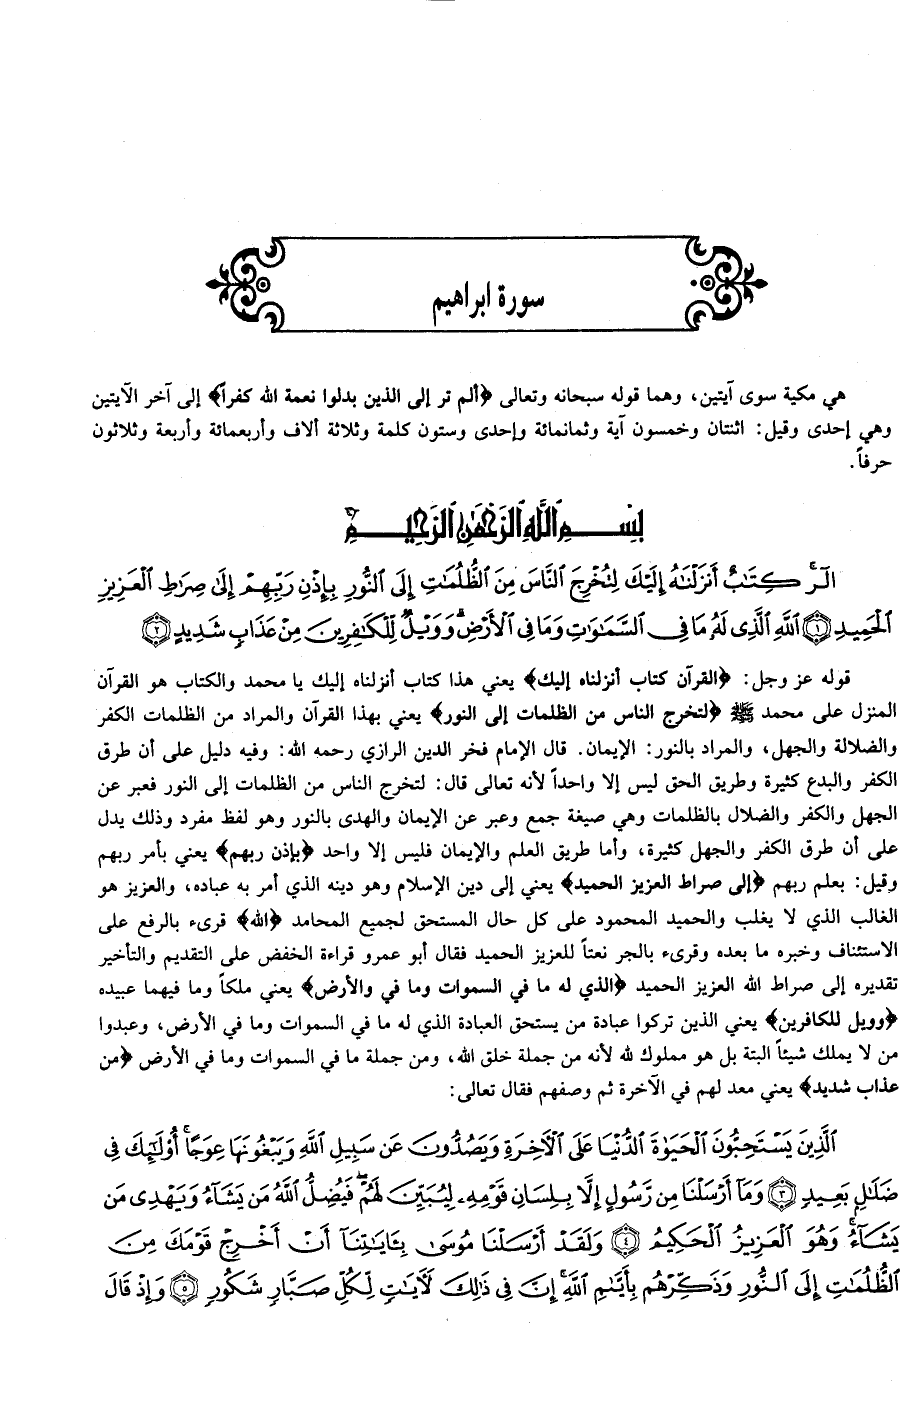 سورة ابراهيم
هي مكية سوى آيتين، وهما قوله سبحانه وتعالى ﴿ألم تر إلى الذين بدلوا نعمة الله كفراً﴾ إلى آخر الآيتين
وهي إحدى وقيل: اثنتان وخمسون آية وثمانمائة وإحدى وستون كلمة وثلاثة ألاف وأربعمائة وأربعة وثلاثون
حرفاً.
بِسْمِ ٱللَّهِ ٱلرَّحْمَٰنِ ٱلرَّحِيمِ
الٓرۚ كِتَٰبٌ أَنزَلْنَٰهُ إِلَيْكَ لِتُخْرِجَ ٱلنَّاسَ مِنَ ٱلظُّلُمَٰتِ إِلَى ٱلنُّورِ بِإِذْنِ رَبِّهِمْ إِلَىٰ صِرَٰطِ ٱلْعَزِيزِ
ٱلْحَمِيدِ ﴿١﴾ ٱللَّهِ ٱلَّذِى لَهُۥ مَا فِى ٱلسَّمَٰوَٰتِ وَمَا فِى ٱلْأَرْضِۗ وَوَيْلٌ لِّلْكَٰفِرِينَ مِنْ عَذَابٍ شَدِيدٍ ﴿٢﴾
قوله عز وجل: ﴿القرآن كتاب أنزلناه إليك﴾ يعني هذا كتاب أنزلناه إليك يا محمد والكتاب هو القرآن
المنزل على محمد ﷺ ﴿لتخرج الناس من الظلمات إلى النور﴾ يعني بهذا القرآن والمراد من الظلمات الكفر
والضلالة والجهل، والمراد بالنور: الإيمان. قال الإمام فخر الدين الرازي رحمه الله: وفيه دليل على أن طرق
الكفر والبدع كثيرة وطريق الحق ليس إلا واحداً لأنه تعالى قال: لتخرج الناس من الظلمات إلى النور فعبر عن
الجهل والكفر والضلال بالظلمات وهي صيغة جمع وعبر عن الإيمان والهدى بالنور وهو لفظ مفرد وذلك يدل
على أن طرق الكفر والجهل كثيرة، وأما طريق العلم والإيمان فليس إلا واحد ﴿بإذن ربهم﴾ يعني بأمر ربهم
وقيل: بعلم ربهم ﴿إلى صراط العزيز الحميد﴾ يعني إلى دين الإسلام وهو دينه الذي أمر به عباده، والعزيز هو
الغالب الذي لا يغلب والحميد المحمود على كل حال المستحق لجميع المحامد ﴿الله﴾ قرىء بالرفع على
الاستئناف وخبره ما بعده وقرىء بالجر نعتاً للعزيز الحميد فقال أبو عمرو قراءة الخفض على التقديم والتأخير
تقديره إلى صراط الله العزيز الحميد ﴿الذي له ما في السموات وما في والأرض﴾ يعني ملكاً وما فيهما عبيده
﴿وويل للكافرين﴾ يعني الذين تركوا عبادة من يستحق العبادة الذي له ما في السموات وما في الأرض، وعبدوا
من لا يملك شيئاً البتة بل هو مملوك لله لأنه من جملة خلق الله، ومن جملة ما في السموات وما في الأرض ﴿من
عذاب شديد﴾ يعني معد لهم في الآخرة ثم وصفهم فقال تعالى:
ٱلَّذِينَ يَسْتَحِبُّونَ ٱلْحَيَوٰةَ ٱلدُّنْيَا عَلَى ٱلْأَخِرَةِ وَيَصُدُّونَ عَن سَبِيلِ ٱللَّهِ وَيَبْغُونَهَا عِوَجًاۚ أُو۟لَٰٓئِكَ فِى
ضَلَٰلٍ بَعِيدٍ ﴿٣﴾ وَمَآ أَرْسَلْنَا مِن رَّسُولٍ إِلَّا بِلِسَانِ قَوْمِهِۦ لِيُبَيِّنَ لَهُمْۖ فَيُضِلُّ ٱللَّهُ مَن يَشَآءُ وَيَهْدِى مَن
يَشَآءُۚ وَهُوَ ٱلْعَزِيزُ ٱلْحَكِيمُ ﴿٤﴾ وَلَقَدْ أَرْسَلْنَا مُوسَىٰ بِـَٔايَٰتِنَآ أَنْ أَخْرِجْ قَوْمَكَ مِنَ
ٱلظُّلُمَٰتِ إِلَى ٱلنُّورِ وَذَكِّرْهُم بِأَيَّىٰمِ ٱللَّهِۚ إِنَّ فِى ذَٰلِكَ لَأَيَٰتٍ لِّكُلِّ صَبَّارٍ شَكُورٍ ﴿٥﴾ وَإِذْ قَالَ